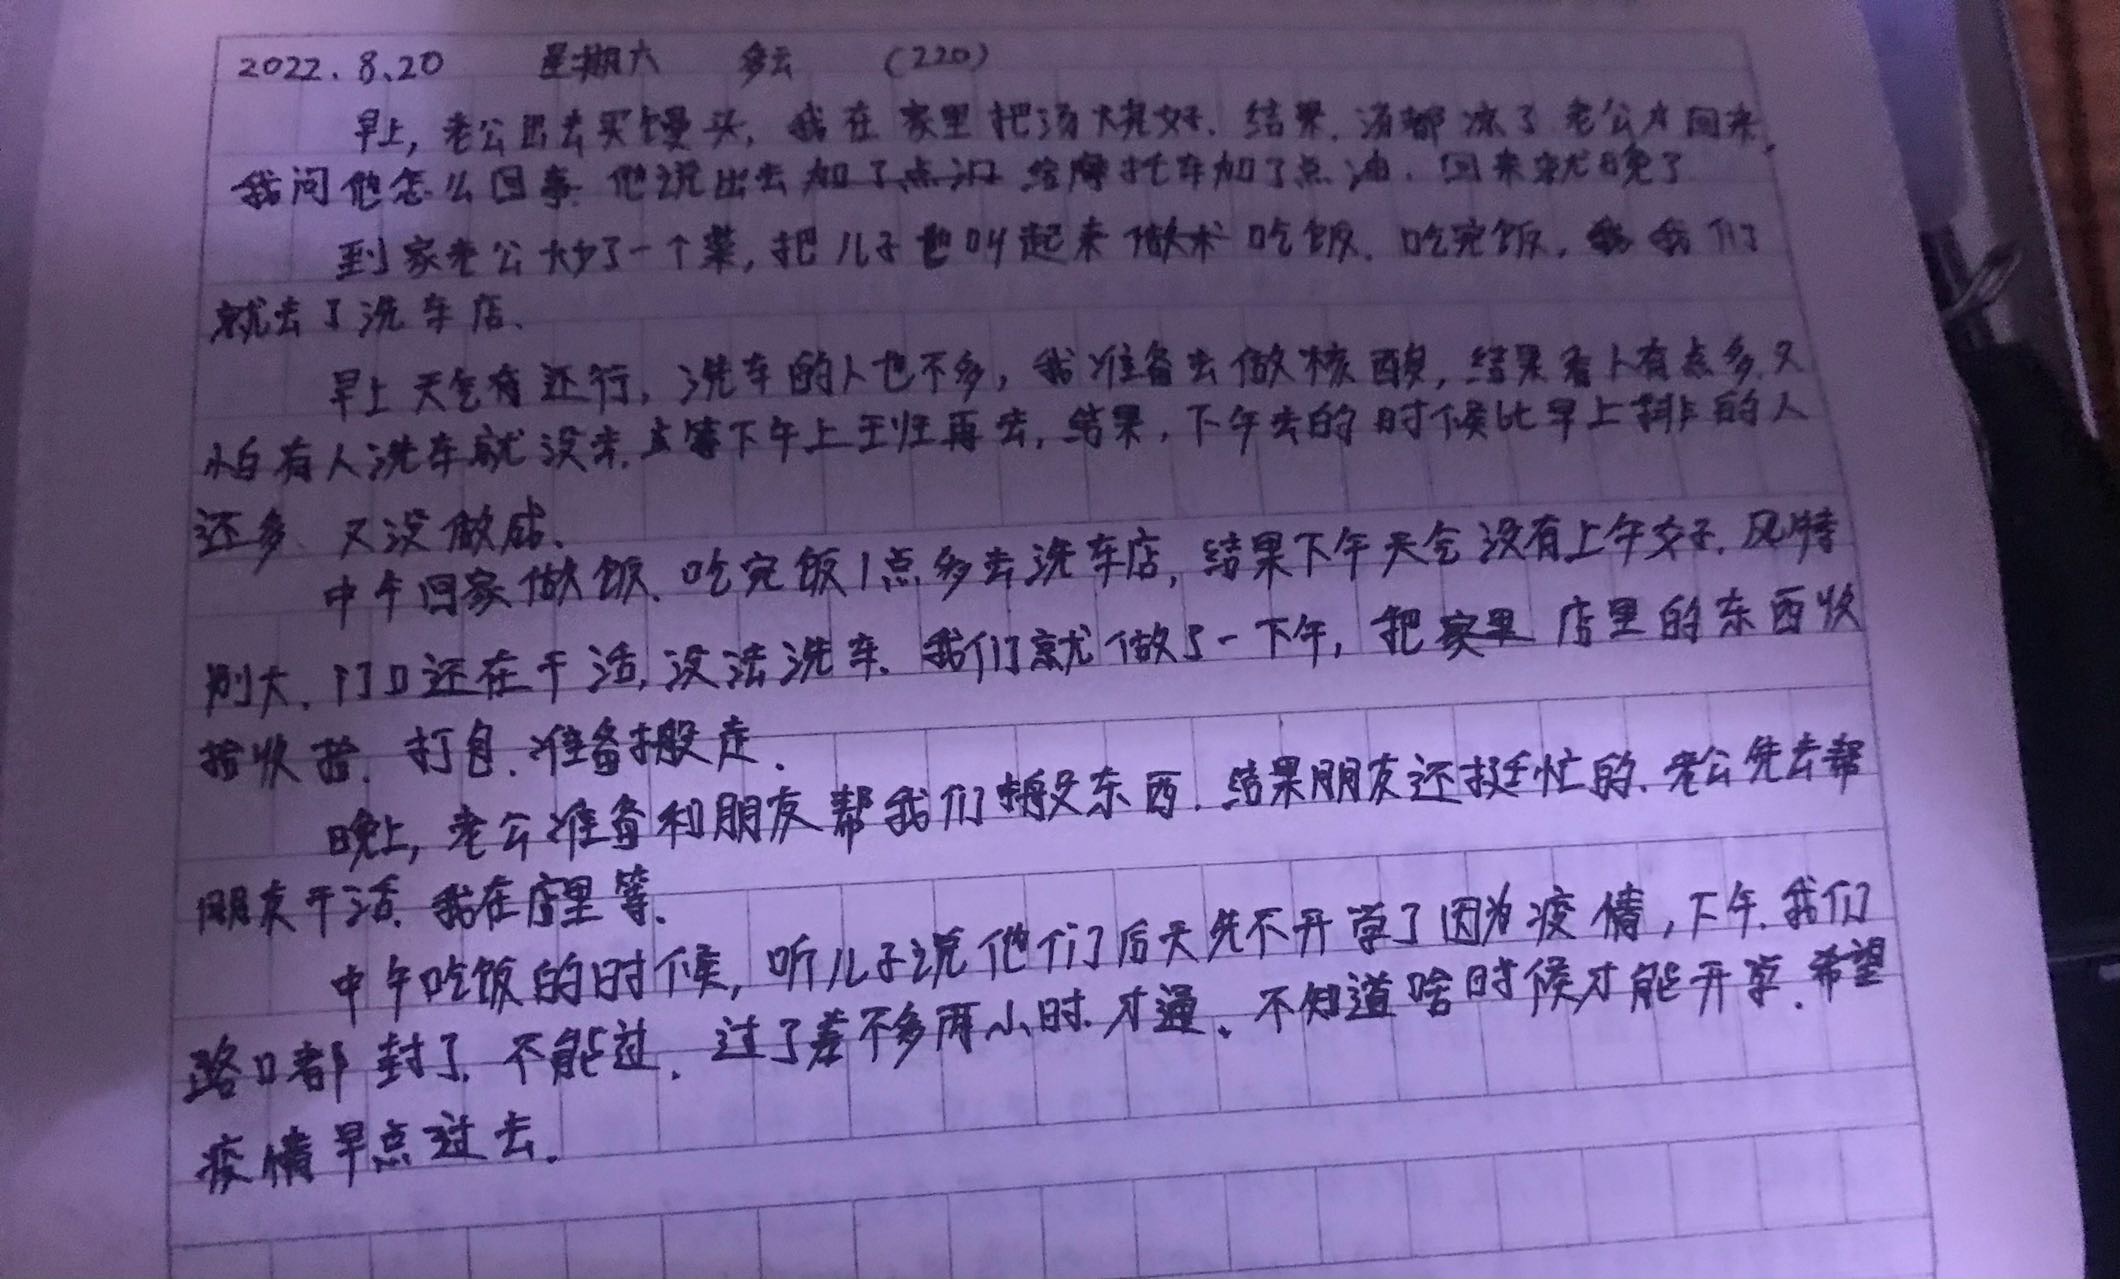 2022.8.20 星期六 多云 (220)
早上,老公出去买馒头,我在家里把汤烧好.结果.汤都凉了老公才回来,
我问他怎么回事.他说出去给摩托车加了点油.回来就晚了
到家老公炒了一个菜,把儿子也叫起来吃饭.吃完饭,我们
就去了洗车店.
早上天气有还行,洗车的人也不多,我准备去做核酸,结果看人有点多.又
怕有人洗车就没去.点等下午上王归再去,结果,下午去的时候比早上排的人
还多、又没做成.
中午回家做饭、吃完饭1点多去洗车店,结果下午天气没有上午好.风特
别大.门口还在干活,没法洗车.我们就做了一下午,把店里的东西收
拾收拾.打包.准备搬走.
晚上,老公准备和朋友帮我们搬东西.结果朋友还挺忙的.老公先去帮
朋友干活.我在店里等.
中午吃饭的时候,听儿子说他们后天先不开学了因为疫情,下午.我们
路口都封了.不能过.过了差不多两小时.才通、不知道啥时候才能开学.希望
疫情早点过去.